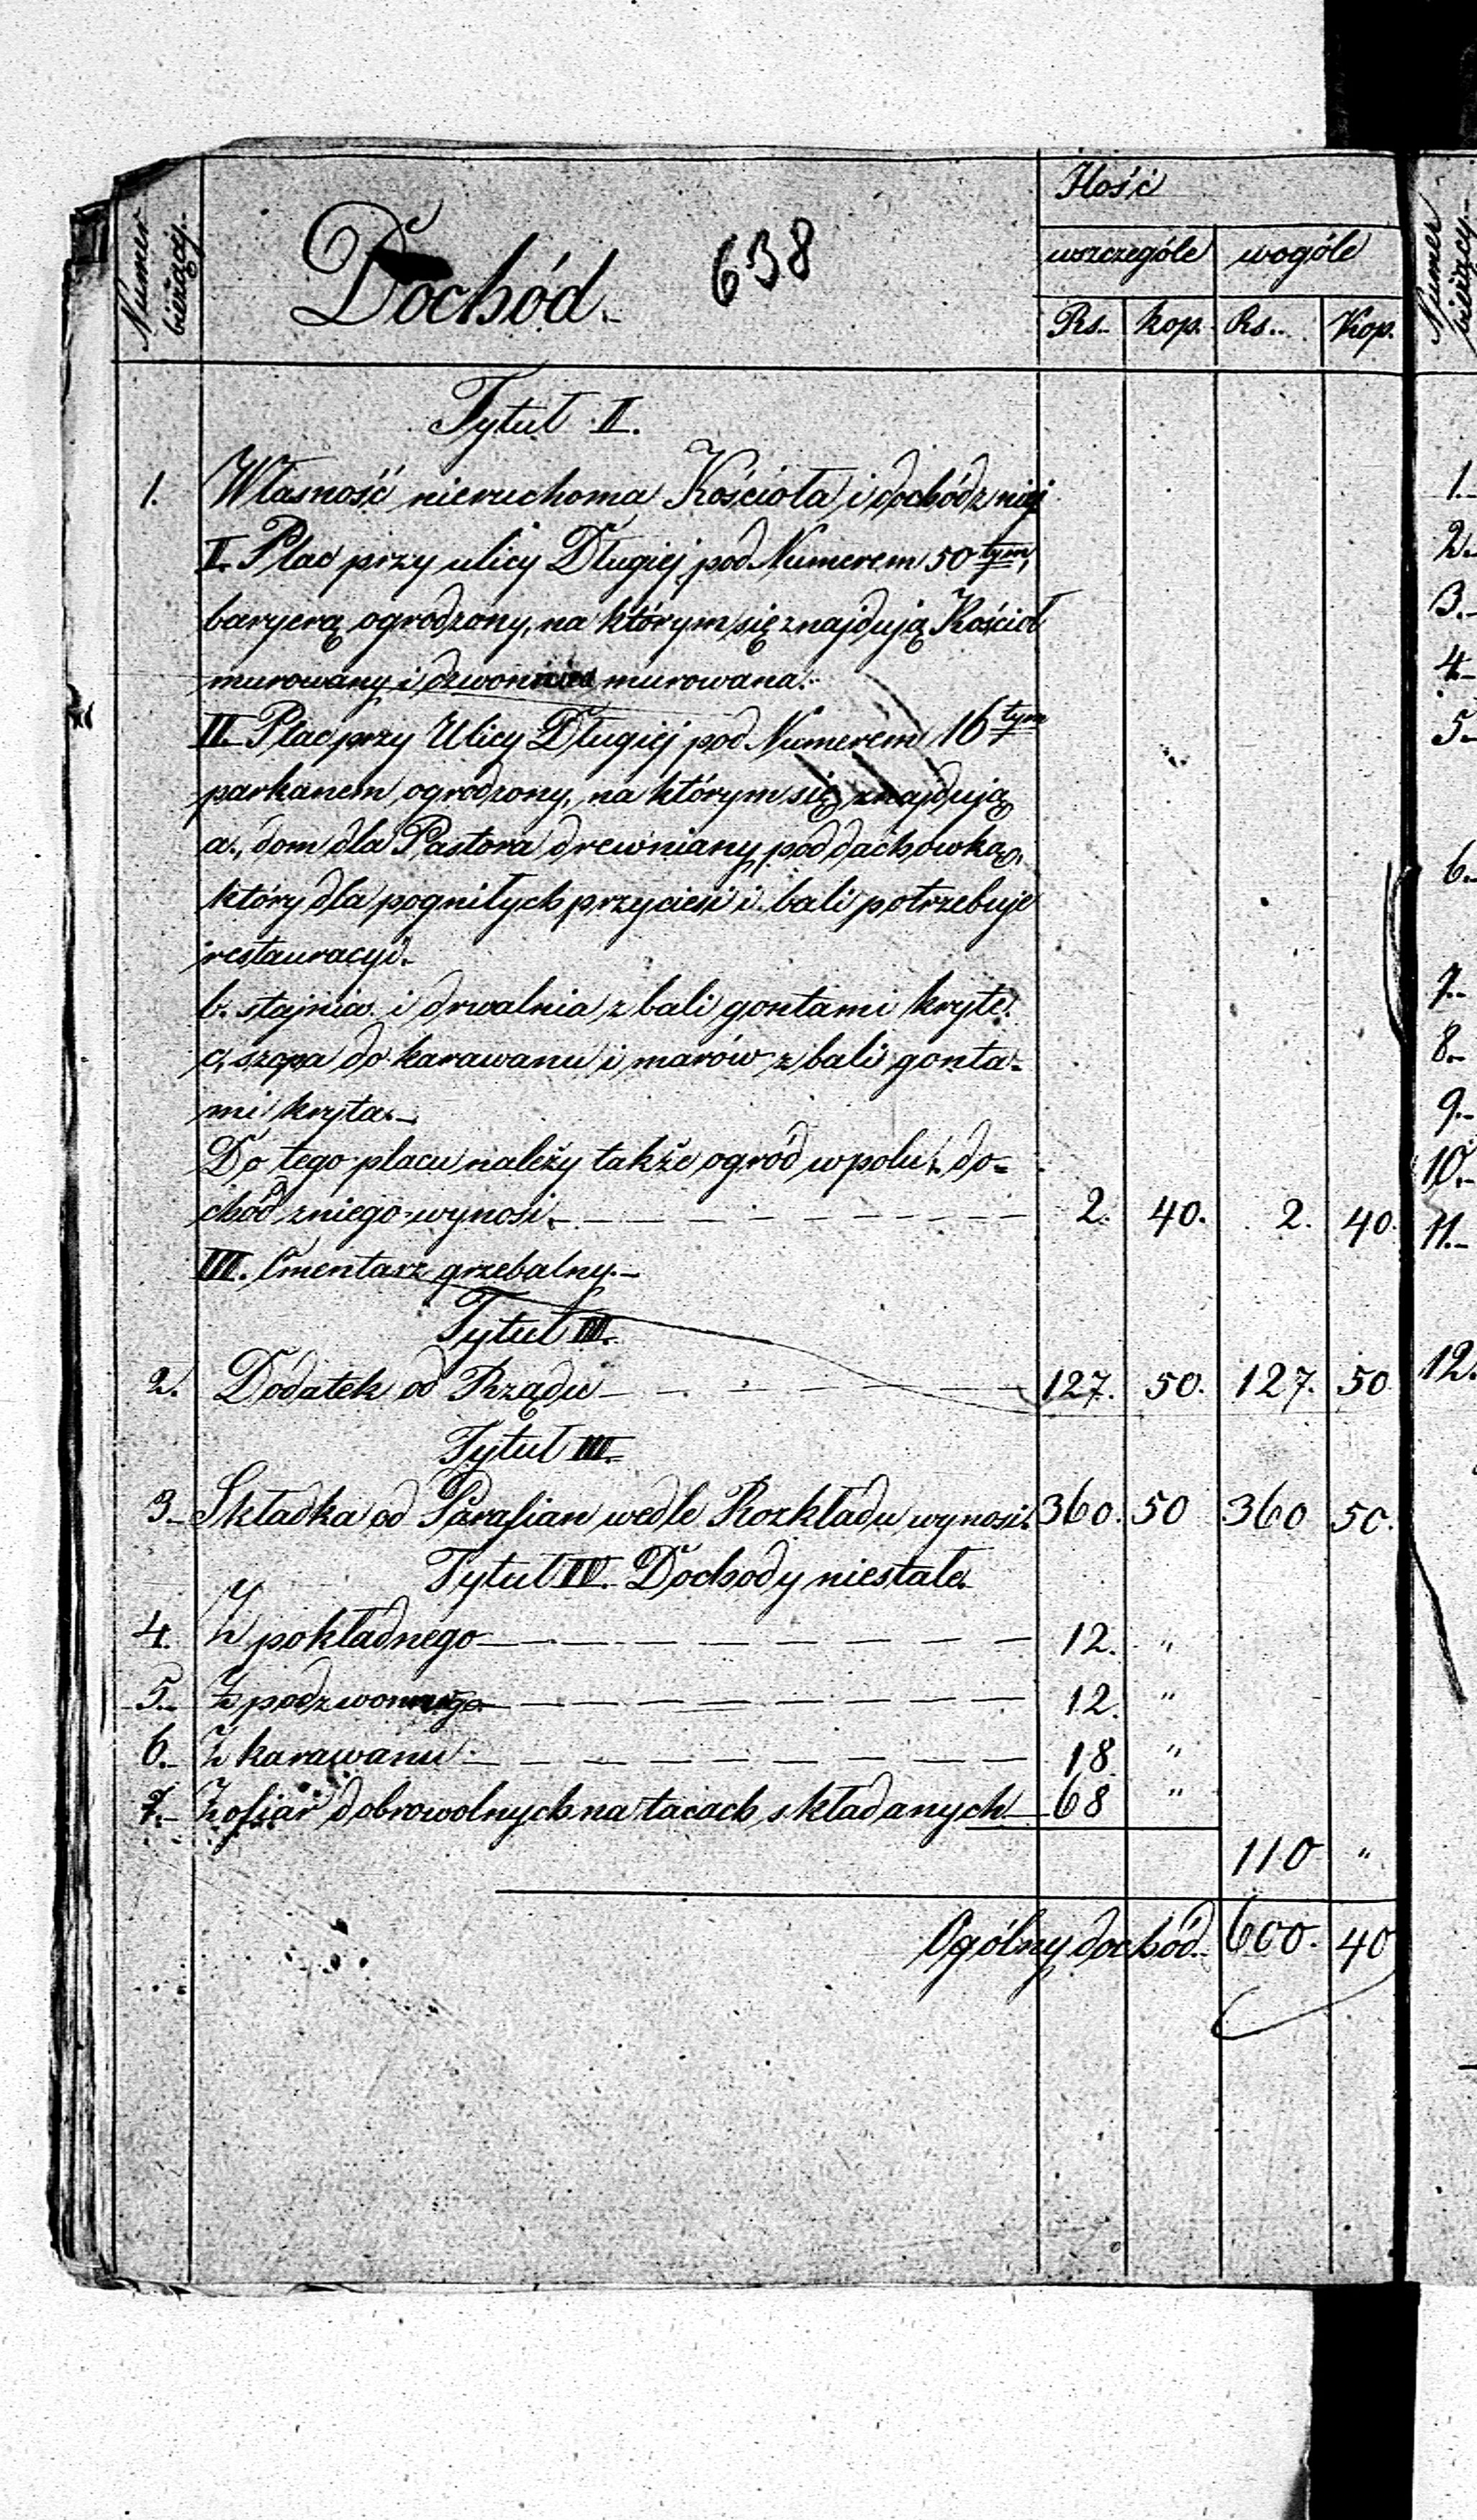 Numer bieżący.
Dochód.
638
Ilość
wszczególe wogóle
Rs. kop. Rs.. Kop.
Numer bieżący.
Tytuł II.
1. Własność nieruchoma Kościoła, i dochód z niej
I. Plac przy ulicy Długiej pod Numerem 50tym,
baryerą ogrodzony, na którym się znajdują Kościoł
murowany i dzwonnica murowana.
II Plac przy Ulicy Długiej pod Numerem 16tym
parkanem ogrodzony, na którym się znajdują
a., dom dla Pastora drewniany pod dachówką,
który dla pogniłych przyciesi i bali potrzebuje
restauracyi.
b. stajnia i drwalnia z bali gontami kryte.
c, szopa do karawanu i marów z bali gonta-
mi kryta.
Do tego placu należy także ogród w polu, do-
chód z niego wynosi. 2. 40. 2. 40.
III. Cmentarz grzebalny.
Tytuł III.
2. Dodatek od Rządu 127. 50. 127. 50
Tytuł III.
3. Składka od Parafian wedle Rozkładu wynosi. 360. 50 360 50.
Tytuł IV. Dochody niestałe.
4. Z pokładnego 12. "
5. Z podzwonnego 12. "
6. Z karawanu 18 "
7. Z ofiar dobrowolnych na tacach składanych 68 "
110 "
Ogólny dochód. 600. 40
1.
2.
3.
4.
5.
6.
7.
8.
9.
10.
11.
12.